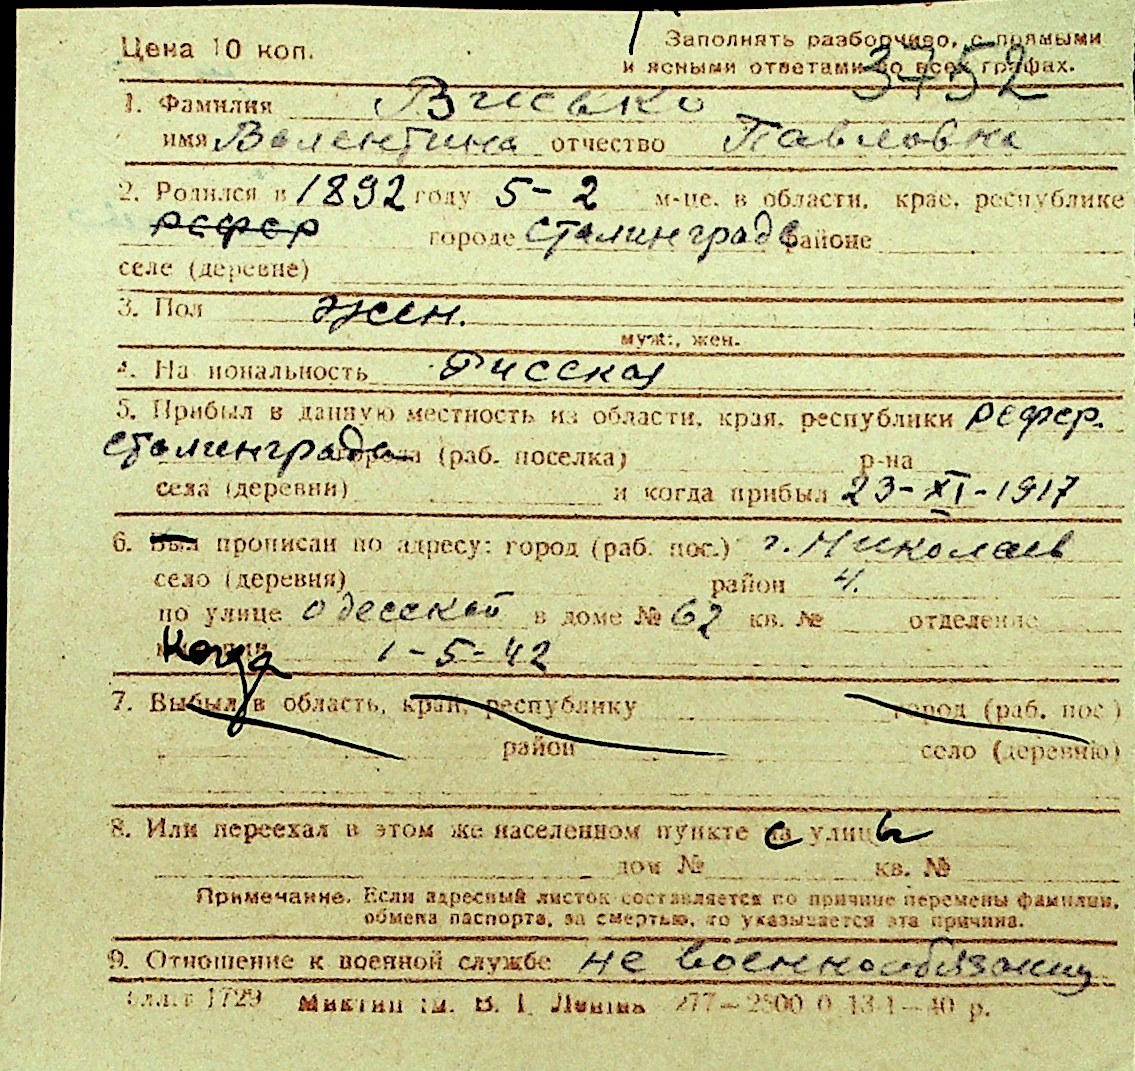 Цена 10 коп.
Заполнять разборчиво, с прямыми
и ясными ответами во всех графах.
3752
1. Фамилия Висько
имя Валентина отчество Павловна
2. Родился в 1892 году 5-2 м-це, в области, крае, республике
рсфср городе Сталинграде районе
селе (деревне)
3. Пол жен.
муж., жен.
4. Национальность Русская
5. Прибыл в данную местность из области, края, республики рсфср.
Сталинграда города (раб. поселка) р-на
села (деревни) и когда прибыл 23-XI-1917
6. Был прописан по адресу: город (раб. пос.) г. Николаев
село (деревня) район 4.
по улице Одесской в доме № 62 кв. № отделение
Когда 1-5-42
7. Выбыл в область, край, республику город (раб. пос.)
район село (деревню)
8. Или переехал в этом же населенном пункте с улицы
дом № кв. №
Примечание. Если адресный листок составляется по причине перемены фамилии,
обмена паспорта, за смертью, то указывается эта причина.
9. Отношение к военной службе не военнообязанн
1729 В. І. Леніна 277—2500 0 13-1—40 р.